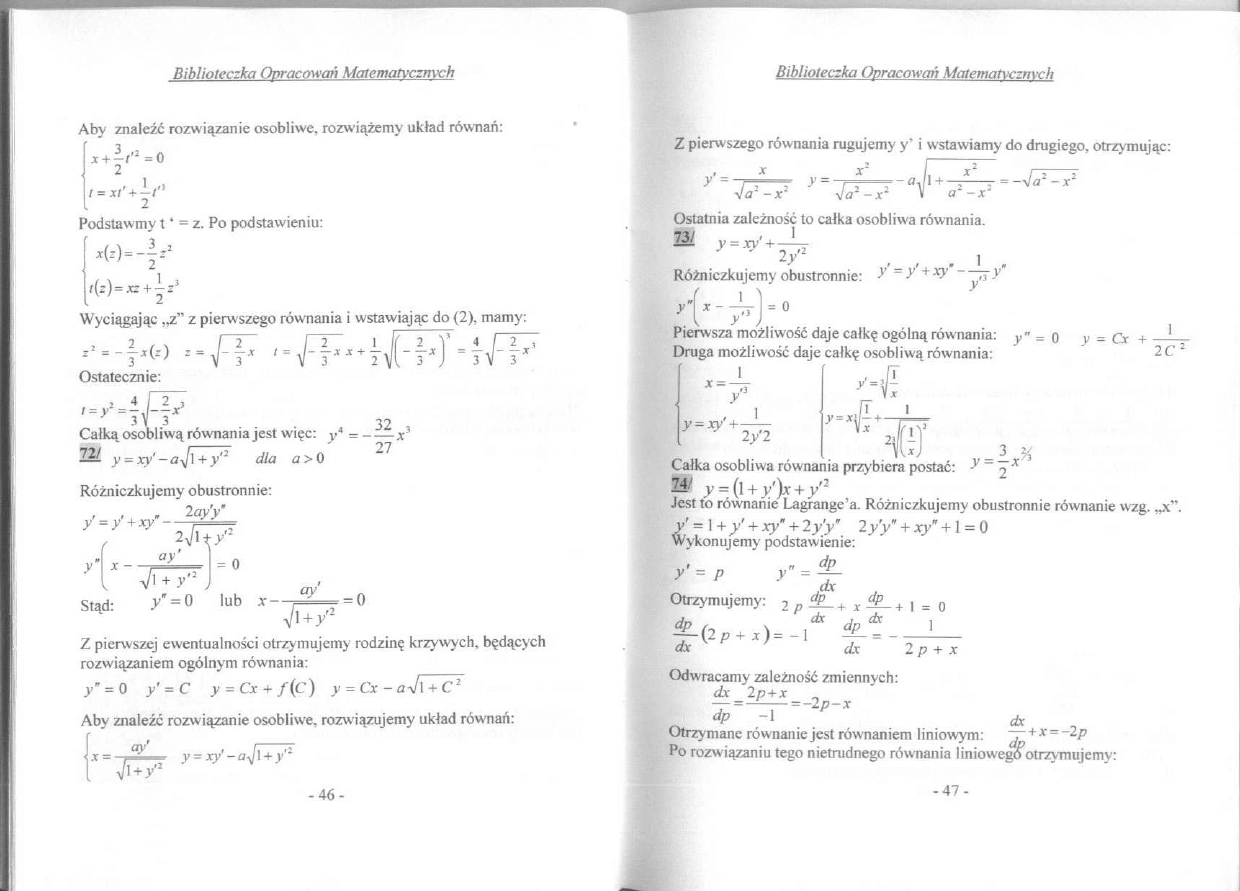 Biblioteczka Opracowań Matematycznych
Aby znaleźć rozwiązanie osobliwe, rozwiążemy układ równań:
x + 3/2 t'² = 0
t = xt' + 1/2 t'³
Podstawmy t ' = z. Po podstawieniu:
x(z) = - 3/2 z²
t(z) = xz + 1/2 z³
Wyciągając „z” z pierwszego równania i wstawiając do (2), mamy:
z² = - 2/3 x(z) z = √(- 2/3 x) t = √(- 2/3 x) x + 1/2 √((- 2/3 x)³) = 4/3 √(- 2/3 x³)
Ostatecznie:
t = y² = 4/3 √(- 2/3 x³)
Całką osobliwą równania jest więc: y⁴ = - 32/27 x³
72/ y = xy' - a√(1 + y'²) dla a > 0
Różniczkujemy obustronnie:
y' = y' + xy" - 2ay'y" / 2√(1 + y'²)
y" ( x - ay' / √(1 + y'²) ) = 0
Stąd: y" = 0 lub x - ay' / √(1 + y'²) = 0
Z pierwszej ewentualności otrzymujemy rodzinę krzywych, będących
rozwiązaniem ogólnym równania:
y" = 0 y' = C y = Cx + f(C) y = Cx - a√(1 + C²)
Aby znaleźć rozwiązanie osobliwe, rozwiązujemy układ równań:
x = ay' / √(1 + y'²) y = xy' - a√(1 + y'²)
- 46 -
Biblioteczka Opracowań Matematycznych
Z pierwszego równania rugujemy y' i wstawiamy do drugiego, otrzymując:
y' = x / √(a² - x²) y = x² / √(a² - x²) - a√(1 + x² / (a² - x²)) = -√(a² - x²)
Ostatnia zależność to całka osobliwa równania.
73/ y = xy' + 1 / 2y'²
Różniczkujemy obustronnie: y' = y' + xy" - 1/y'³ y"
y" ( x - 1/y'³ ) = 0
Pierwsza możliwość daje całkę ogólną równania: y" = 0 y = Cx + 1 / 2C²
Druga możliwość daje całkę osobliwą równania:
x = 1/y'³ y' = ³√(1/x)
y = xy' + 1 / 2y'2 y = x ³√(1/x) + 1 / 2 ³√((1/x)²)
Całka osobliwa równania przybiera postać: y = 3/2 x^(2/3)
74/ y = (1 + y')x + y'²
Jest to równanie Lagrange'a. Różniczkujemy obustronnie równanie wzg. „x”.
y' = 1 + y' + xy" + 2y'y" 2y'y" + xy" + 1 = 0
Wykonujemy podstawienie:
y' = p y" = dp/dx
Otrzymujemy: 2p dp/dx + x dp/dx + 1 = 0
dp/dx (2p + x) = -1 dp/dx = - 1 / (2p + x)
Odwracamy zależność zmiennych:
dx/dp = (2p + x) / -1 = -2p - x
Otrzymane równanie jest równaniem liniowym: dx/dp + x = -2p
Po rozwiązaniu tego nietrudnego równania liniowego otrzymujemy:
- 47 -